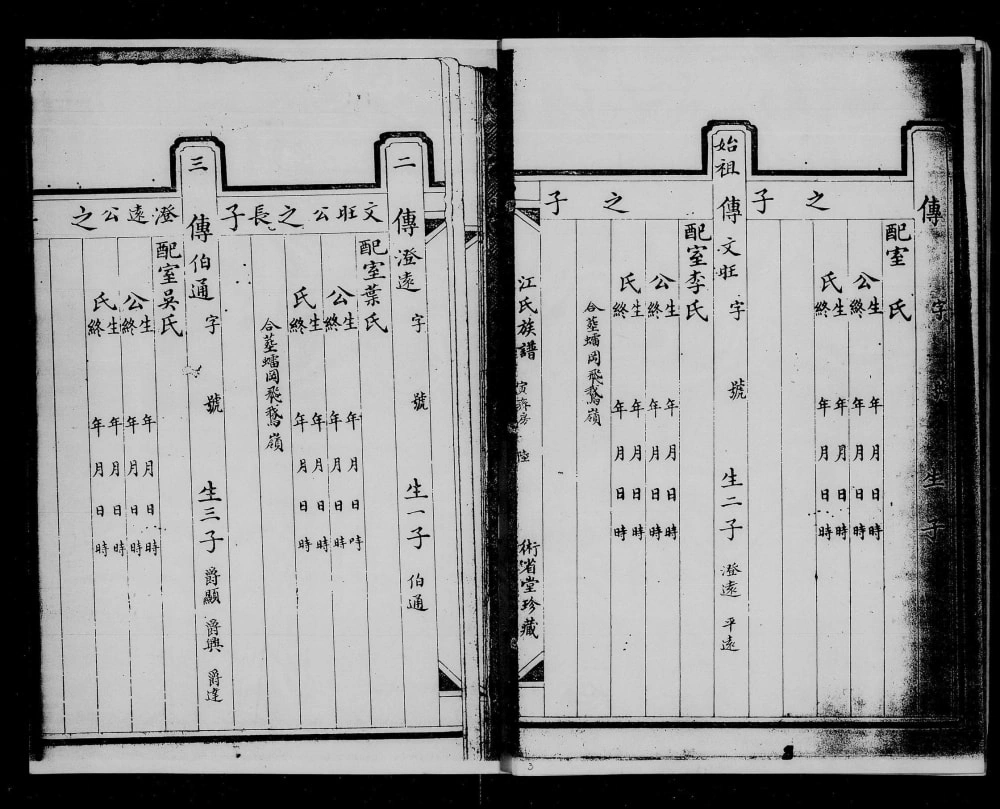 傳 字 號 生 子
之 子
配室 氏
公生 年 月 日 時
公終 年 月 日 時
氏生 年 月 日 時
氏終 年 月 日 時
始祖 傳 文旺 字 號 生二子 澄遠 平遠
之 子
配室李氏
公生 年 月 日 時
公終 年 月 日 時
氏生 年 月 日 時
氏終 年 月 日 時
合塟蠕岡飛鵞嶺
江氏族譜 房 陸 術省堂珍藏
二 傳 澄遠 字 號 生一子 伯通
文旺公之長子
配室葉氏
公生 年 月 日 時
公終 年 月 日 時
氏生 年 月 日 時
氏終 年 月 日 時
合塟蠕岡飛鵞嶺
三 傳 伯通 字 號 生三子 爵顯 爵興 爵達
澄遠公之
配室吳氏
公生 年 月 日 時
公終 年 月 日 時
氏生 年 月 日 時
氏終 年 月 日 時
3